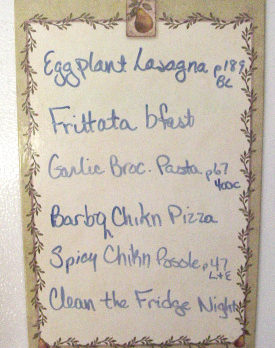 Eggplant Lasagna p189
BC
Frittata bfast
Garlic Broc. Pasta p67
400c
Barbq Chikn Pizza
Spicy Chikn Posole p47
L+E
Clean the Fridge Night